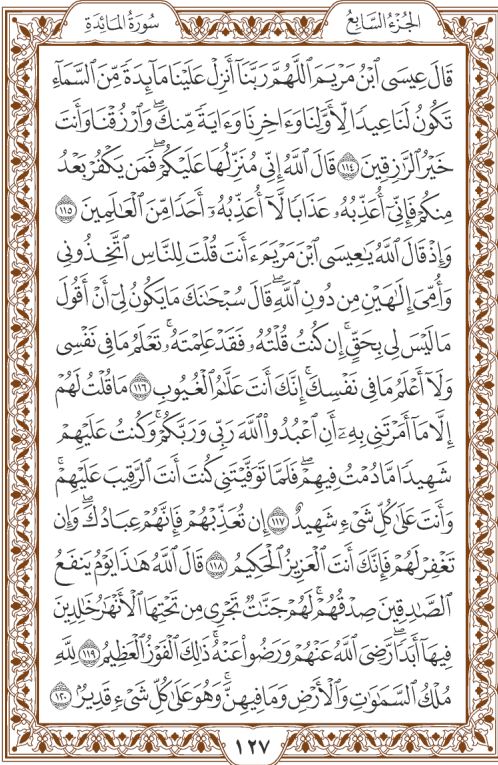 الجُزْءُ السَّابِعُ
سُورَةُ المَائِدَةِ
قَالَ عِيسَى ٱبْنُ مَرْيَمَ ٱللَّهُمَّ رَبَّنَآ أَنزِلْ عَلَيْنَا مَآئِدَةً مِّنَ ٱلسَّمَآءِ
تَكُونُ لَنَا عِيدًا لِّأَوَّلِنَا وَءَاخِرِنَا وَءَايَةً مِّنكَۖ وَٱرْزُقْنَا وَأَنتَ
خَيْرُ ٱلرَّٰزِقِينَ ١١٤ قَالَ ٱللَّهُ إِنِّي مُنَزِّلُهَا عَلَيْكُمْۖ فَمَن يَكْفُرْ بَعْدُ
مِنكُمْ فَإِنِّيٓ أُعَذِّبُهُۥ عَذَابًا لَّآ أُعَذِّبُهُۥٓ أَحَدًا مِّنَ ٱلْعَٰلَمِينَ ١١٥
وَإِذْ قَالَ ٱللَّهُ يَٰعِيسَى ٱبْنَ مَرْيَمَ ءَأَنتَ قُلْتَ لِلنَّاسِ ٱتَّخِذُونِي
وَأُمِّيَ إِلَٰهَيْنِ مِن دُونِ ٱللَّهِۖ قَالَ سُبْحَٰنَكَ مَا يَكُونُ لِيٓ أَنْ أَقُولَ
مَا لَيْسَ لِي بِحَقٍّۚ إِن كُنتُ قُلْتُهُۥ فَقَدْ عَلِمْتَهُۥۚ تَعْلَمُ مَا فِي نَفْسِي
وَلَآ أَعْلَمُ مَا فِي نَفْسِكَۚ إِنَّكَ أَنتَ عَلَّٰمُ ٱلْغُيُوبِ ١١٦ مَا قُلْتُ لَهُمْ
إِلَّا مَآ أَمَرْتَنِي بِهِۦٓ أَنِ ٱعْبُدُوا۟ ٱللَّهَ رَبِّي وَرَبَّكُمْۚ وَكُنتُ عَلَيْهِمْ
شَهِيدًا مَّا دُمْتُ فِيهِمْۖ فَلَمَّا تَوَفَّيْتَنِي كُنتَ أَنتَ ٱلرَّقِيبَ عَلَيْهِمْۚ
وَأَنتَ عَلَىٰ كُلِّ شَيْءٍ شَهِيدٌ ١١٧ إِن تُعَذِّبْهُمْ فَإِنَّهُمْ عِبَادُكَۖ وَإِن
تَغْفِرْ لَهُمْ فَإِنَّكَ أَنتَ ٱلْعَزِيزُ ٱلْحَكِيمُ ١١٨ قَالَ ٱللَّهُ هَٰذَا يَوْمُ يَنفَعُ
ٱلصَّٰدِقِينَ صِدْقُهُمْۚ لَهُمْ جَنَّٰتٌ تَجْرِي مِن تَحْتِهَا ٱلْأَنْهَٰرُ خَٰلِدِينَ
فِيهَآ أَبَدًاۖ رَّضِيَ ٱللَّهُ عَنْهُمْ وَرَضُوا۟ عَنْهُۚ ذَٰلِكَ ٱلْفَوْزُ ٱلْعَظِيمُ ١١٩ لِلَّهِ
مُلْكُ ٱلسَّمَٰوَٰتِ وَٱلْأَرْضِ وَمَا فِيهِنَّۚ وَهُوَ عَلَىٰ كُلِّ شَيْءٍ قَدِيرٌۢ ١٢٠
١٢٧